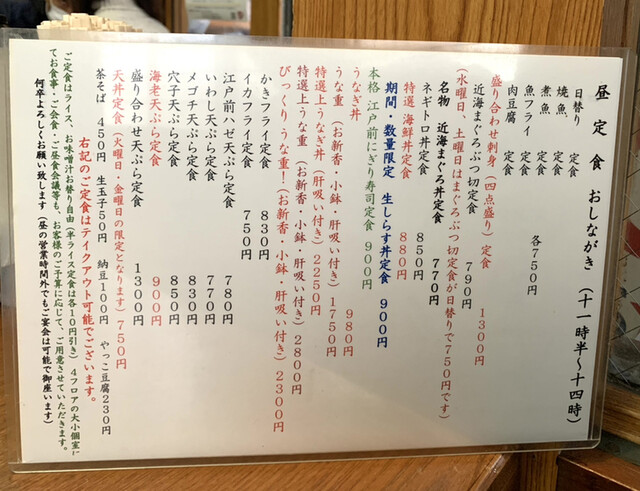 昼定食 おしながき (十一時半〜十四時)
日替り 定食
焼魚 定食
煮魚 定食
魚フライ 定食
肉豆腐 定食
各750円
盛り合わせ刺身(四点盛り)定食 1300円
近海まぐろぶつ切定食 790円
(水曜日、土曜日はまぐろぶつ切定食が日替りで750円です)
名物 近海まぐろ丼定食 770円
ネギトロ丼定食 850円
特選 海鮮丼定食 880円
期間・数量限定 生しらす丼定食 900円
本格 江戸前にぎり寿司定食 900円
うなぎ丼 980円
うな重(お新香・小鉢・肝吸い付き)1750円
特選上うなぎ丼(肝吸い付き)2250円
特選上うな重(お新香・小鉢・肝吸い付き)2800円
びっくりうな重!(お新香・小鉢・肝吸い付き)2300円
かきフライ定食 830円
イカフライ定食 750円
江戸前ハゼ天ぷら定食 780円
いわし天ぷら定食 770円
メゴチ天ぷら定食 830円
穴子天ぷら定食 850円
海老天ぷら定食 900円
盛り合わせ天ぷら定食 1300円
天丼定食(火曜日・金曜日の限定となります)750円
茶そば 450円 生玉子50円 納豆100円 やっこ豆腐230円
右記のご定食はテイクアウト可能でございます。
ご定食はライス、お味噌汁お替り自由(半ライス定食は各10円引き) 4フロアの大小個室に
てお食事・ご会食・ご昼食会議等も、お客様のご予算に応じて、ご用意させていただきます。
何卒よろしくお願い致します(昼の営業時間外でもご宴会は可能で御座います)